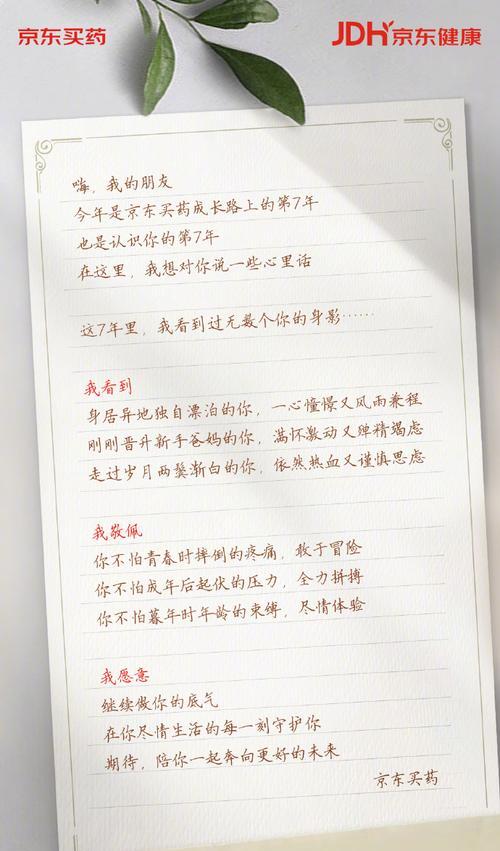 京东买药
JDH京东健康
嗨，我的朋友
今年是京东买药成长路上的第7年
也是认识你的第7年
在这里，我想对你说一些心里话
这7年里，我看到过无数个你的身影……
我看到
身居异地独自漂泊的你，一心憧憬又风雨兼程
刚刚晋升新手爸妈的你，满怀激动又殚精竭虑
走过岁月两鬓渐白的你，依然热血又谨慎思虑
我敬佩
你不怕青春时摔倒的疼痛，敢于冒险
你不怕成年后起伏的压力，全力拼搏
你不怕暮年时年龄的束缚，尽情体验
我愿意
继续做你的底气
在你尽情生活的每一刻守护你
期待，陪你一起奔向更好的未来
京东买药